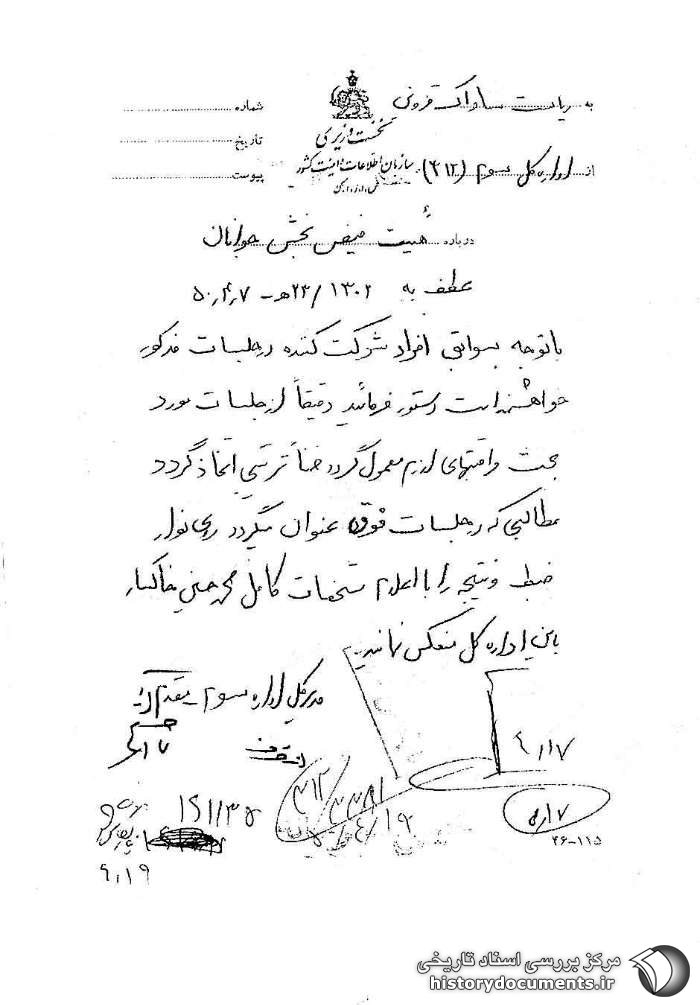 به ریاست ساواک قزوین
شماره
نخست وزیری
تاریخ
از اداره کل سوم (۳۱۲)
سازمان اطلاعات و امنیت کشور
پیوست
درباره هیئت فیض بخش جوانان
عطف به ۱۳۰۲/۲۳ه‍ - ۵۰٫۴٫۷
باتوجه بسوابق افراد شرکت کننده در جلسات مذکور
خواهشمند است دستور فرمائید دقیقاً از جلسات مورد
بحث مراقبتهای لازم معمول گردد ضمناً ترتیبی اتخاذ گردد
مطالبی که در جلسات فوق عنوان میگردد روی نوار
ضبط و نتیجه را با اعلام مشخصات کامل محمدحسنی خاکسار
باین اداره کل منعکس نمایند.
مدیرکل اداره سوم - مقدم
از طرف
۴/۱۷
۳۱۲/
۱۹۱/۳۵
۴/۱۹
۵/۱۷
۲۶-۱۱۵
۹/۱۹
مرکز بررسی اسناد تاریخی
historydocuments.ir